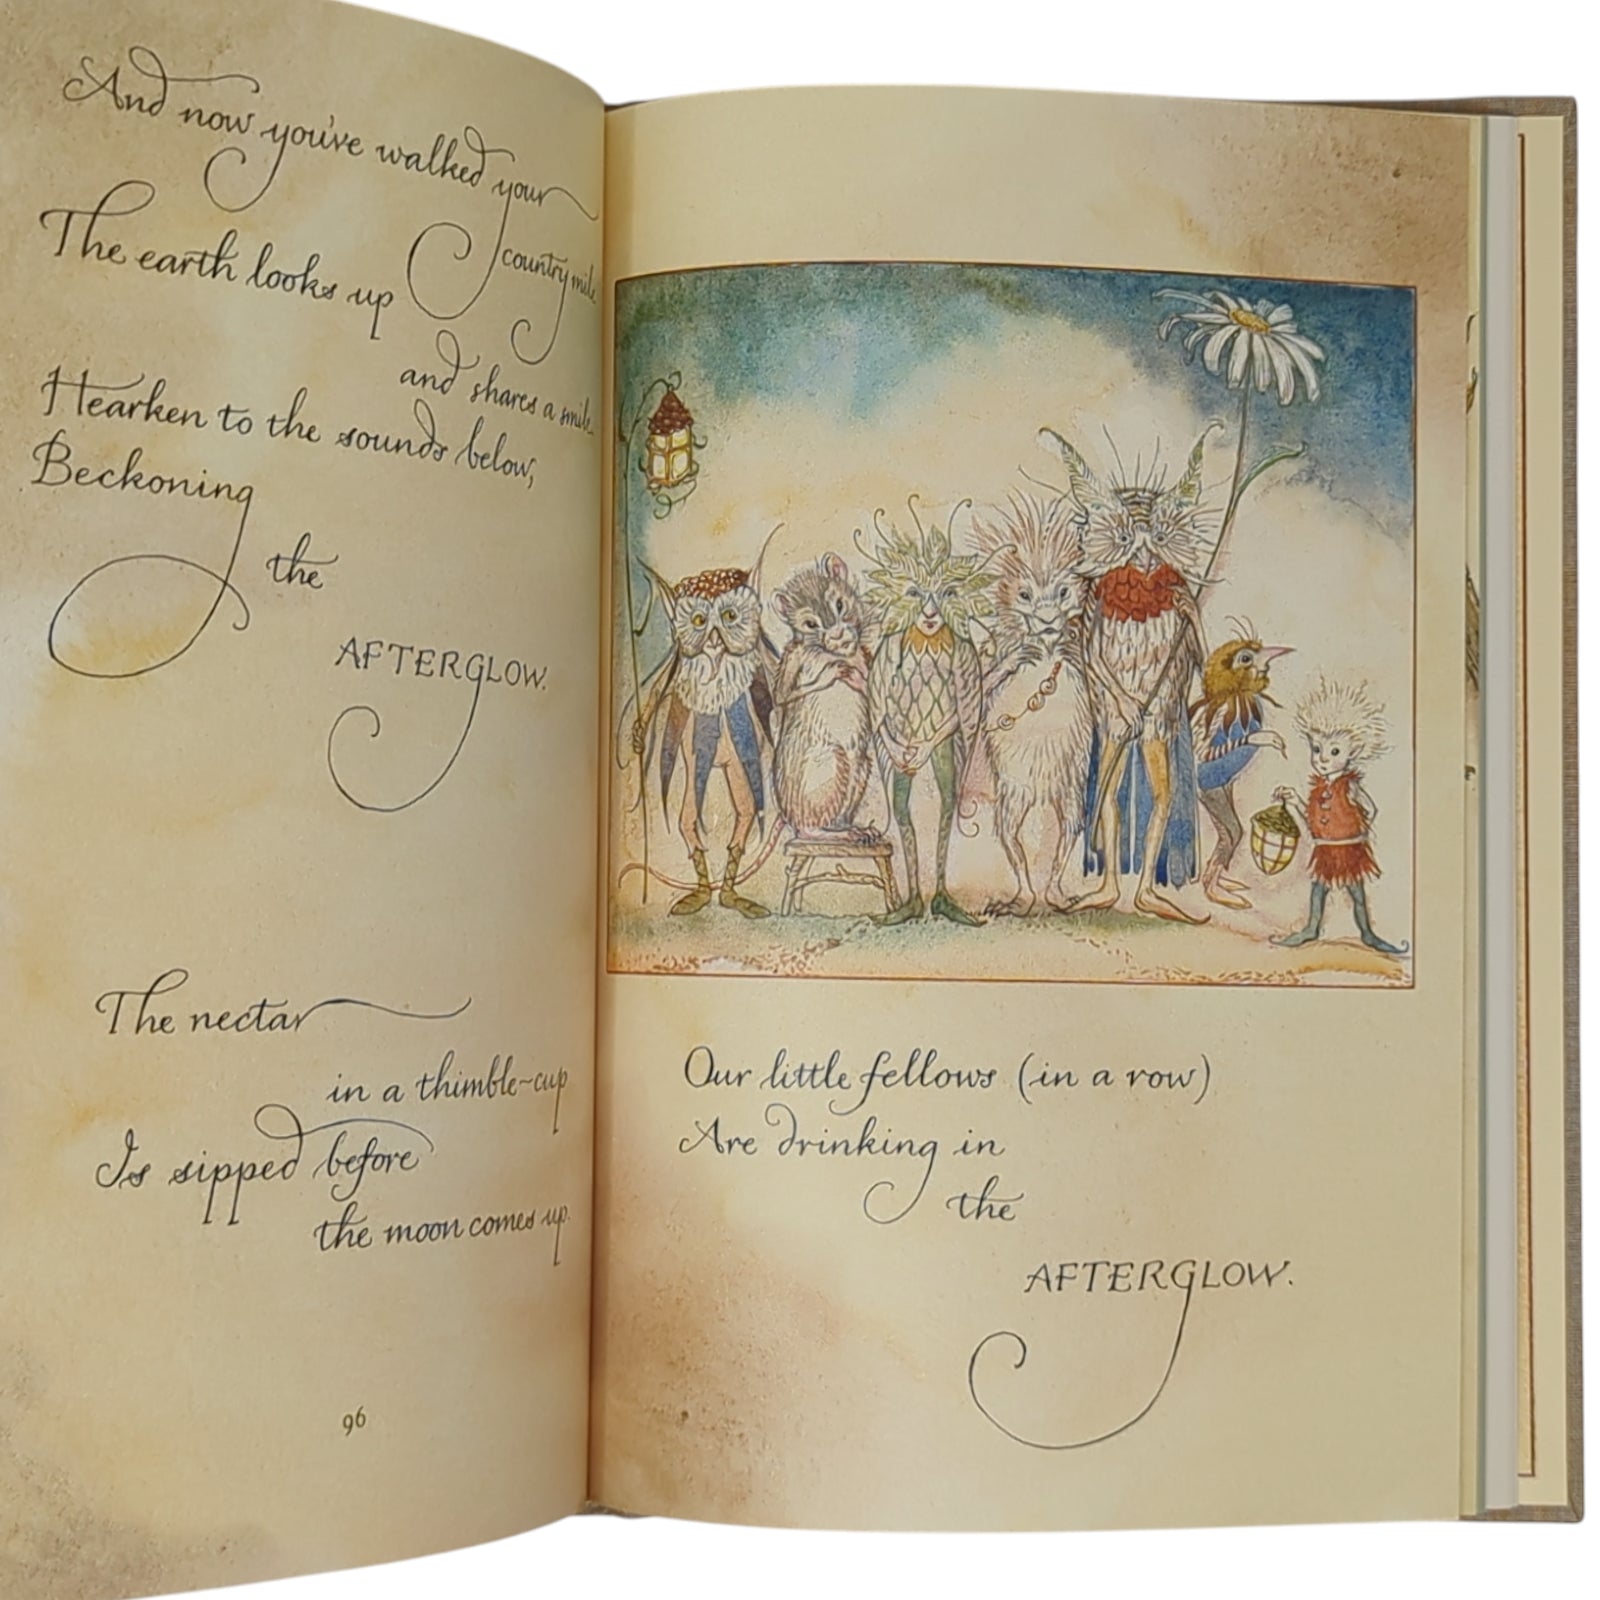 And now you've walked your
country mile
The earth looks up
and shares a smile.
Hearken to the sounds below,
Beckoning
the
AFTERGLOW.
The nectar
in a thimble-cup
Is sipped before
the moon comes up.
96
Our little fellows (in a row)
Are drinking in
the
AFTERGLOW.